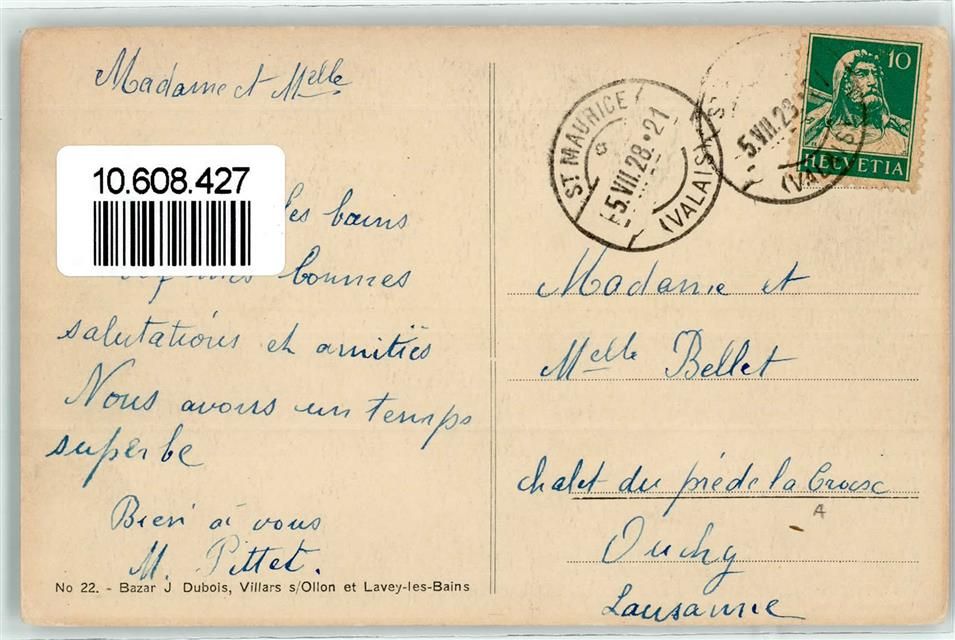 Madame et Melle
10.608.427
les bains
bonnes
salutations et amitiés
Nous avons un temps
superbe
Bien à vous
M. Pittet.
No 22. - Bazar J Dubois, Villars s/Ollon et Lavey-les-Bains
ST MAURICE
-5.VII.28.-21
(VALAIS)
-5.VII.28.
(VALAIS)
10
HELVETIA
Madame et
Melle Bellet
chalet du pré de la Croix
Ouchy
Lausanne